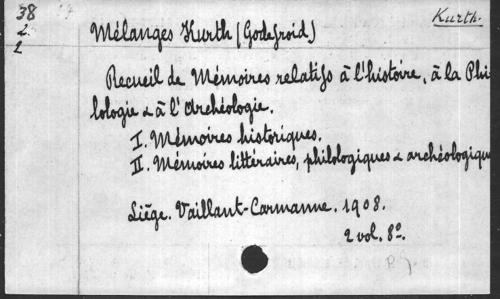 38
2
1
Kurth.
Mélanges Kurth (Godefroid)
Recueil de Mémoires relatifs à l'histoire, à la Phi
lologie & à l'Archéologie.
I. Mémoires historiques.
II. Mémoires littéraires, philologiques & archéologique
Liège. Vaillant-Carmanne. 1908.
2 vol. 8º.